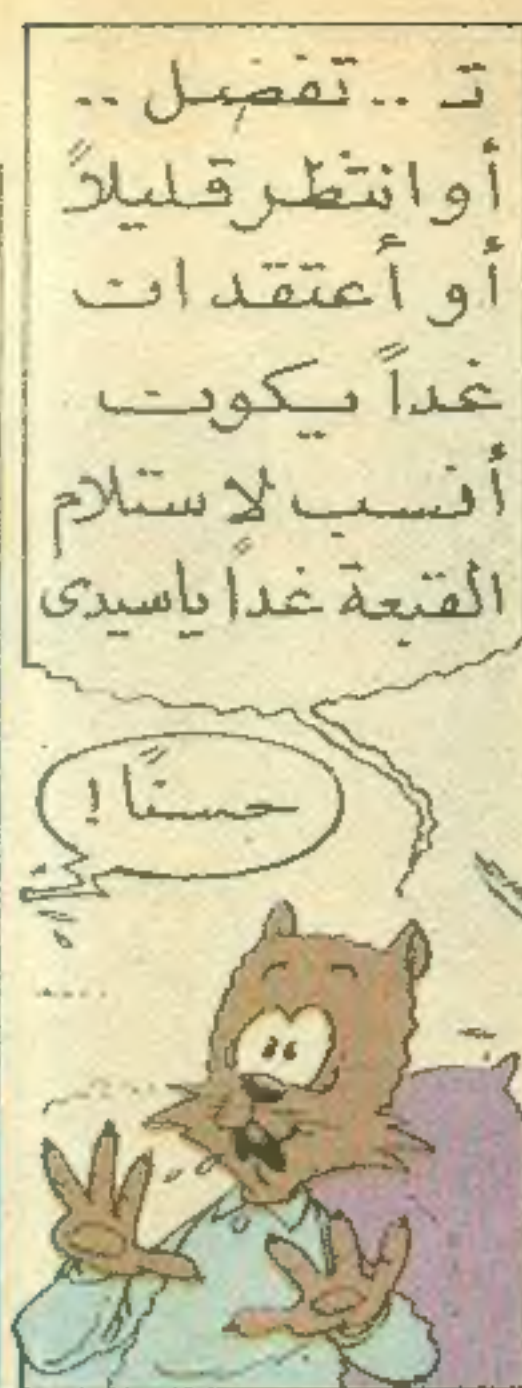 تـ .. تفضل ..
أو انتظر قليلاً
أو أعتقد ان
غداً يكون
أنسب لاستلام
القبعة غداً ياسيدى
حسنًا !